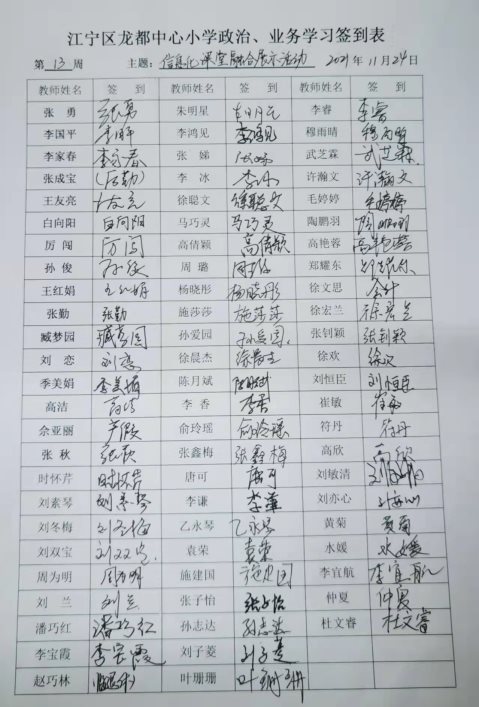 江宁区龙都中心小学政治、业务学习签到表
第 13 周 主题: 信息化课堂融合展示活动 2021年11月24日
教师姓名 签 到 教师姓名 签 到 教师姓名 签 到
张 勇 张勇 朱明星 朱明星 李睿 李睿
李国平 李国平 李鸿见 李鸿见 穆雨晴 穆雨晴
李家春 李家春 张 娣 张娣 武芝霖 武芝霖
张成宝 (后勤) 李 冰 李冰 许瀚文 许瀚文
王友亮 徐聪文 徐聪文 毛婷婷 毛婷婷
白向阳 白向阳 马巧灵 马巧灵 陶鹏羽 陶鹏羽
厉闯 厉闯 高倩颖 高倩颖 高艳蓉 高艳蓉
孙俊 孙俊 周 璐 周璐 郑耀东
王红娟 王红娟 杨晓彤 杨晓彤 徐文思
张勤 张勤 施莎莎 施莎莎 徐宏兰 徐宏兰
臧梦园 臧梦园 孙爱园 孙爱园 张钊颖 张钊颖
刘 恋 刘恋 徐晨杰 徐晨杰 徐欢 徐欢
季美娟 季美娟 陈月斌 陈月斌 刘恒臣 刘恒臣
高洁 高洁 李 香 李香 崔敏 崔敏
佘亚丽 产假 俞玲瑶 俞玲瑶 符丹 符丹
张 秋 张秋 张鑫梅 张鑫梅 高欣 高欣
时怀芹 时怀芹 唐可 唐可 刘敏清
刘素琴 刘素琴 李谦 李谦 刘亦心
刘冬梅 刘冬梅 乙永琴 乙永琴 黄菊 黄菊
刘双宝 刘双宝 袁荣 袁荣 水媛 水媛
周为明 周为明 施建国 施建国 李宜航 李宜航
刘 兰 刘兰 张子怡 张子怡 仲夏 仲夏
潘巧红 潘巧红 孙志达 孙志达 杜文睿 杜文睿
李宝霞 李宝霞 刘子菱 刘子菱
赵巧林 叶珊珊 叶珊珊